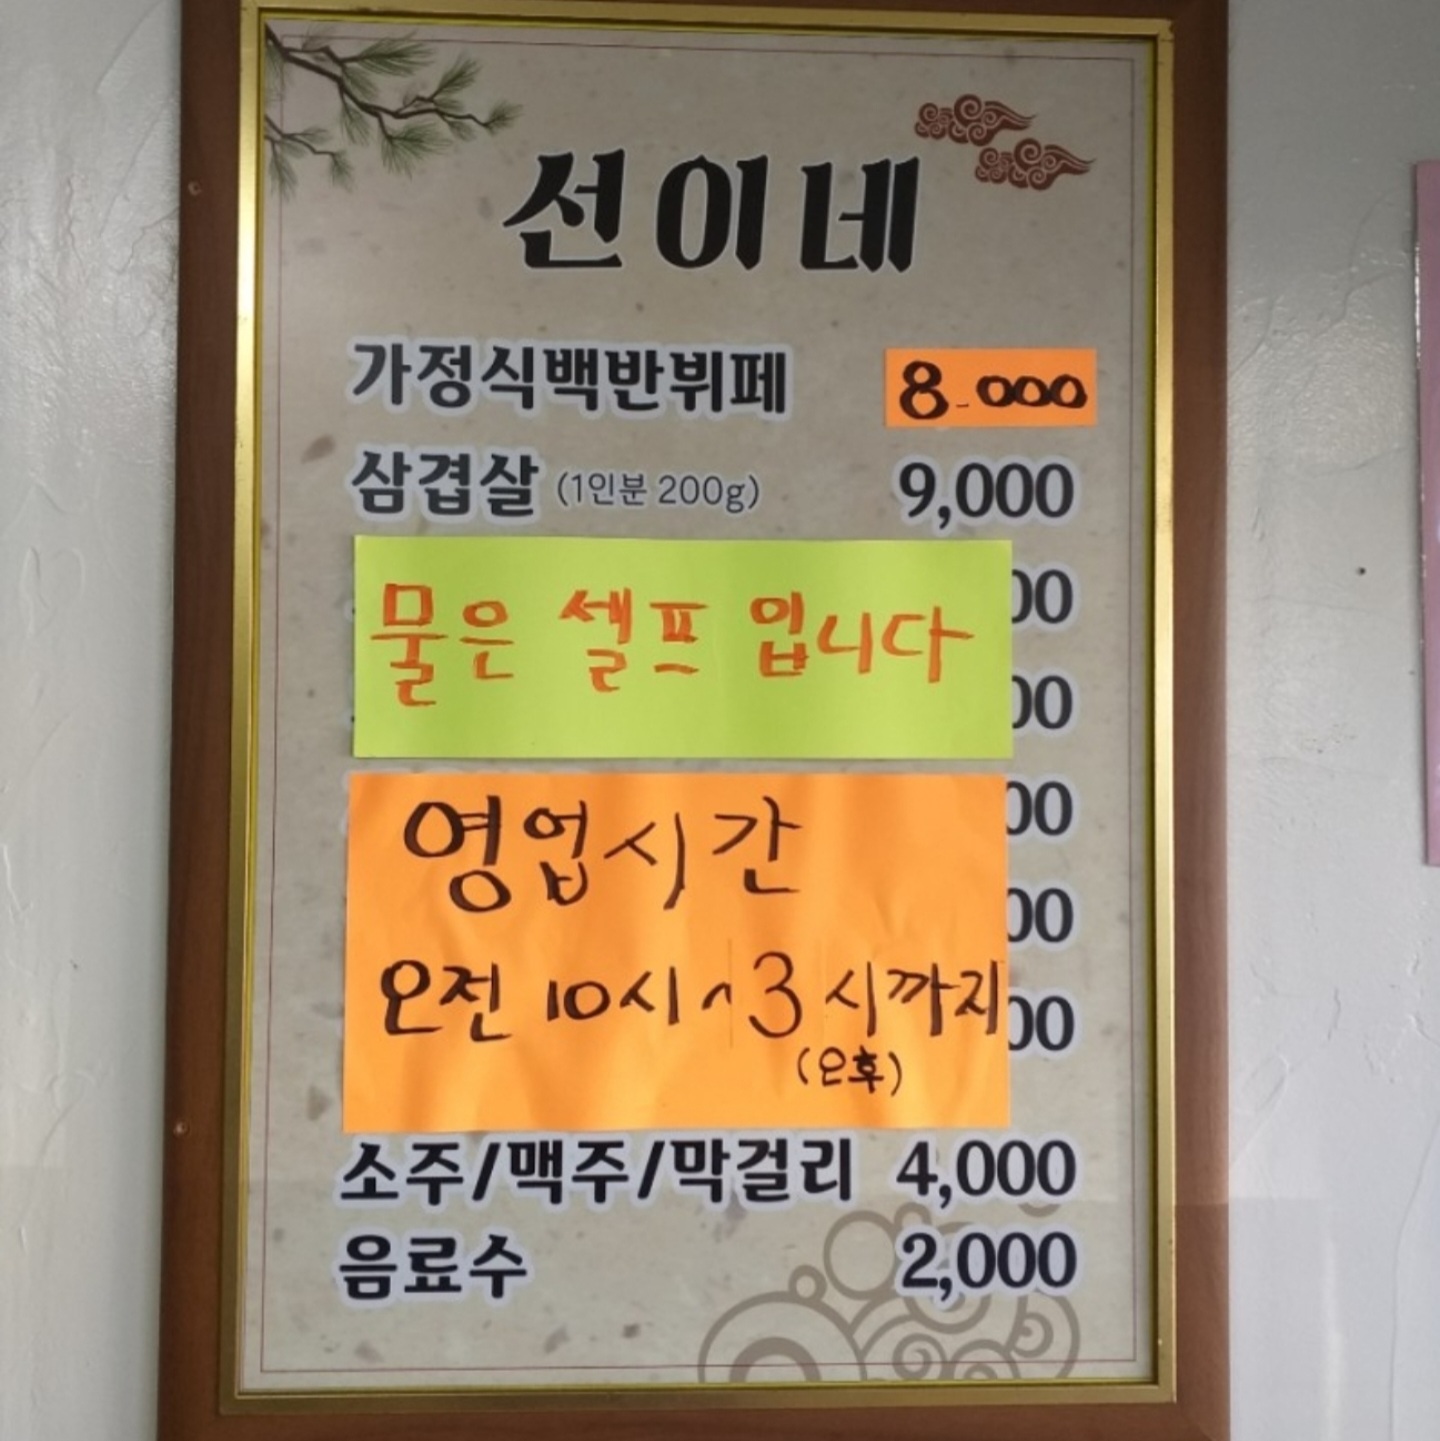 선이네
가정식백반뷔페 8.000
삼겹살 (1인분 200g) 9,000
물은 셀프 입니다
영업시간
오전 10시~3시까지
(오후)
소주/맥주/막걸리 4,000
음료수 2,000